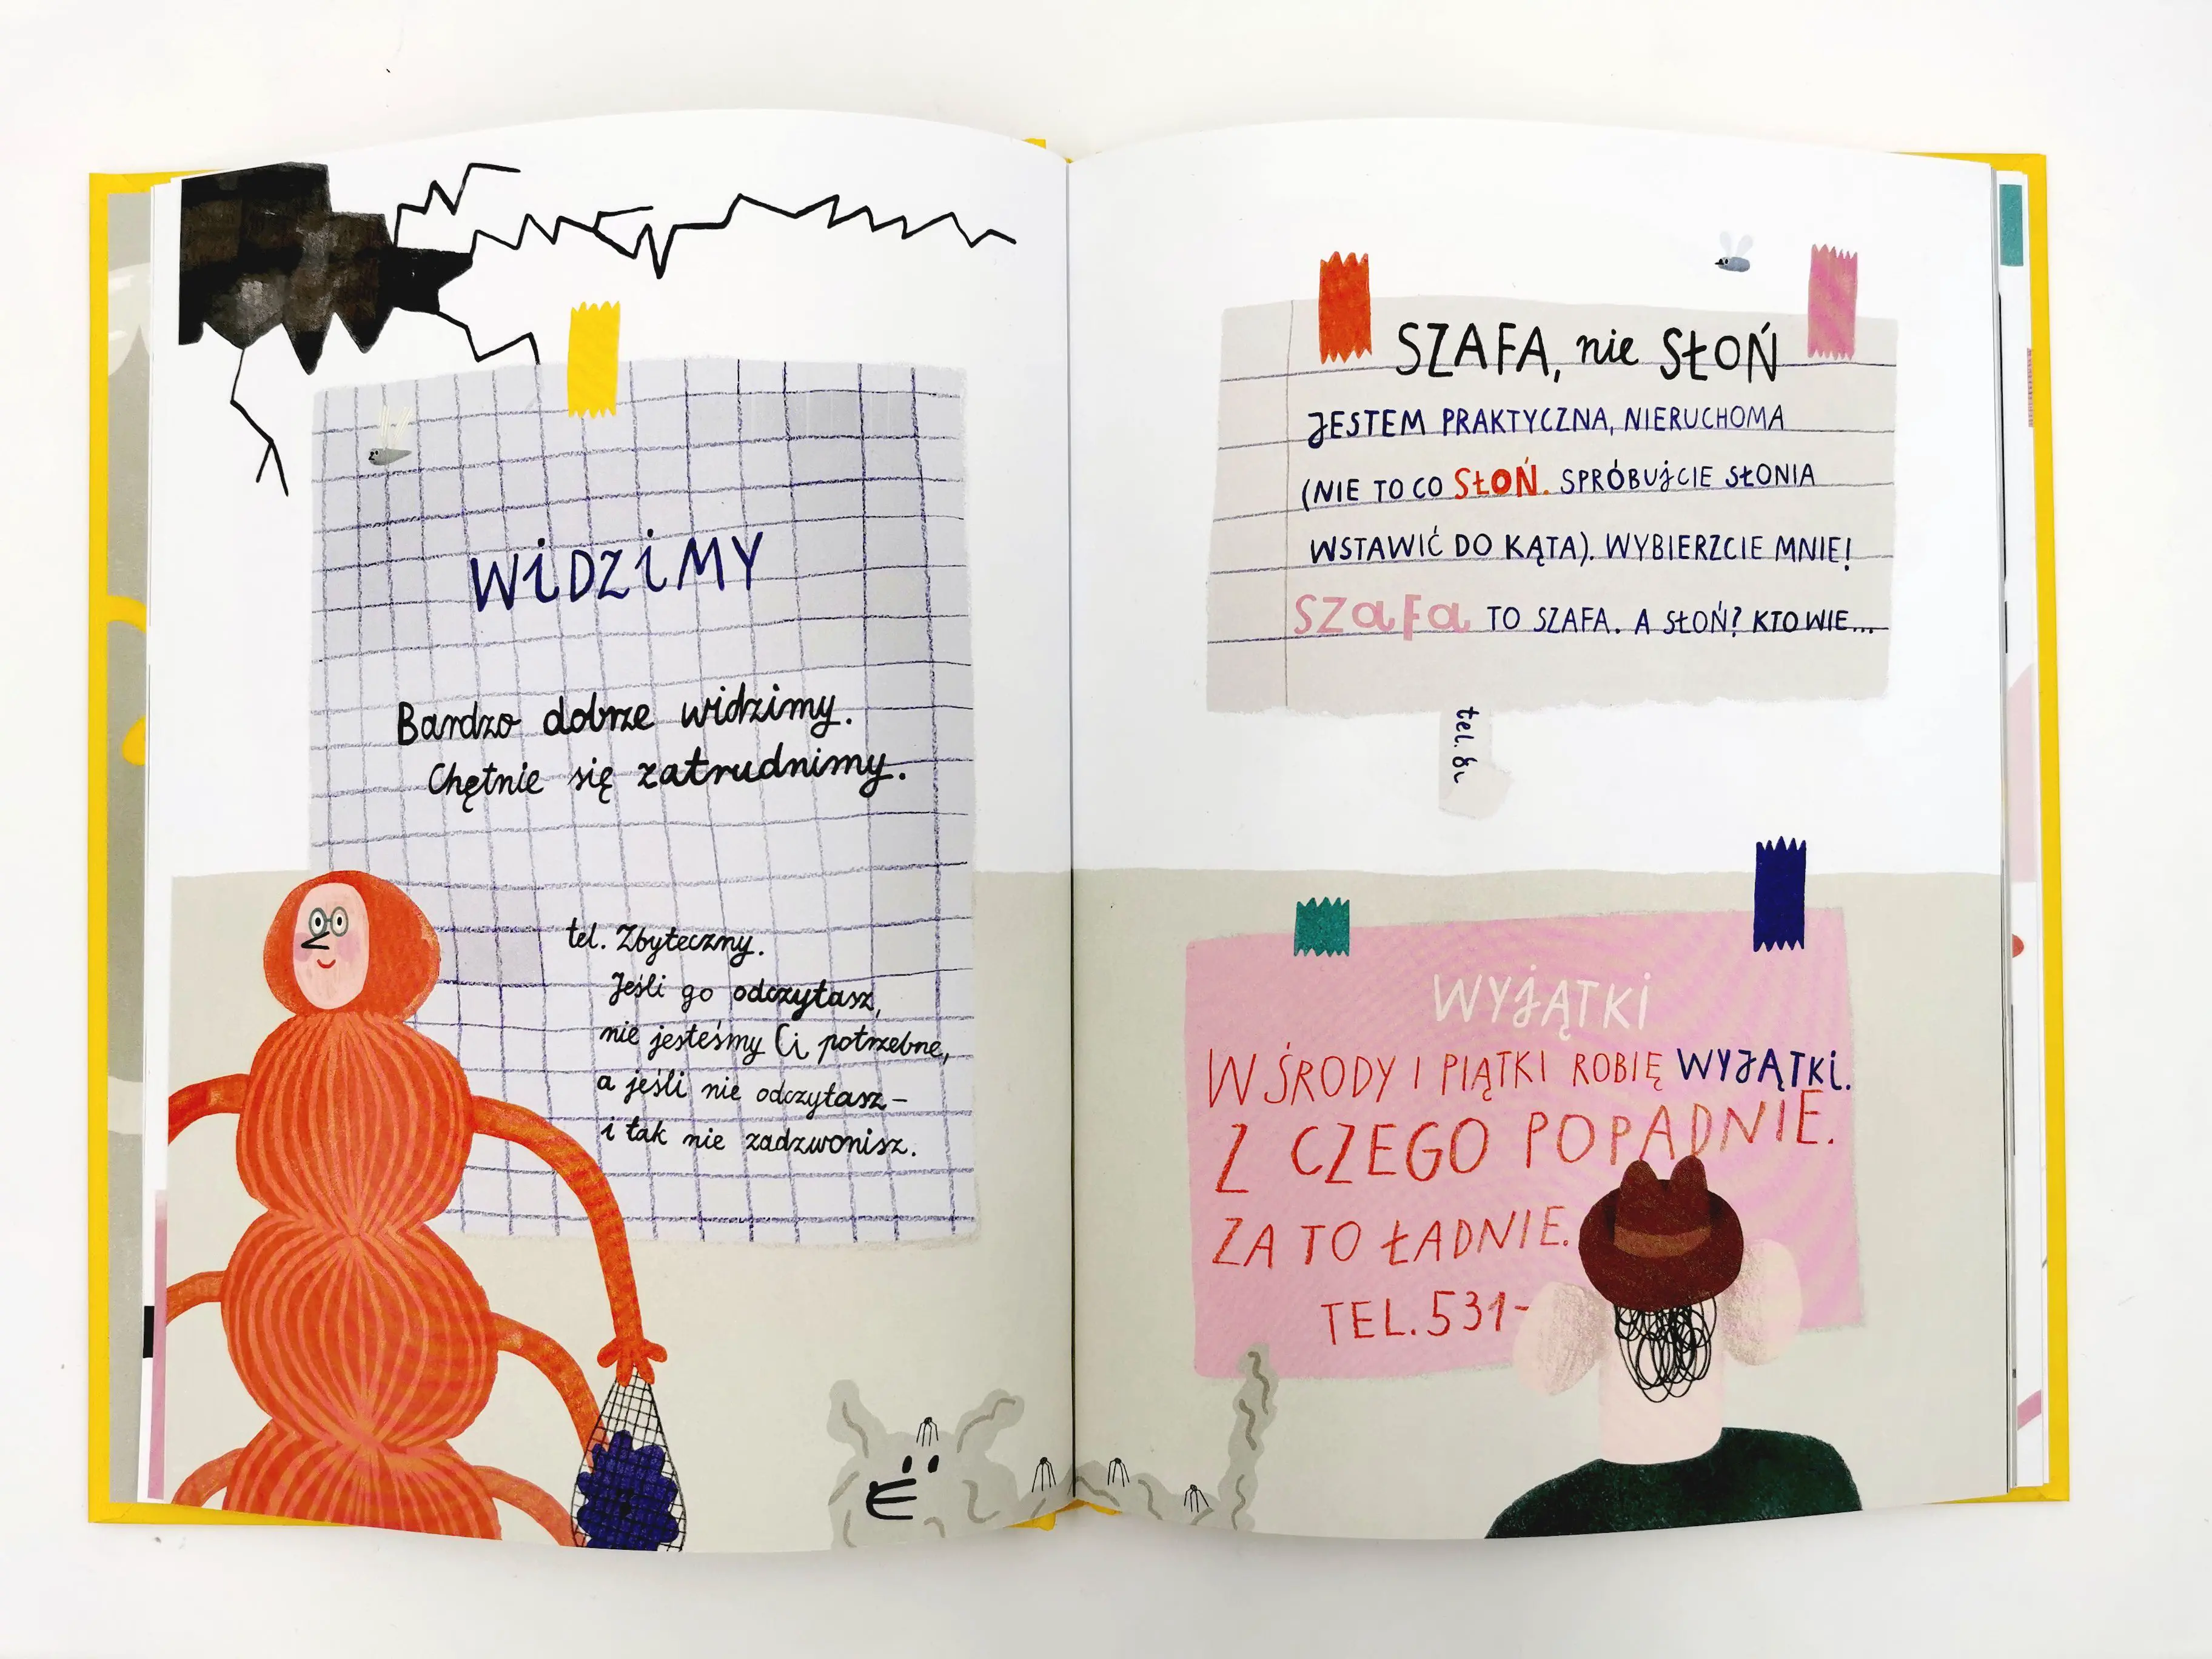 WiDZiMY
Bardzo dobrze widzimy.
Chętnie się zatrudnimy.
tel. Zbyteczny.
Jeśli go odczytasz,
nie jesteśmy Ci potrzebne,
a jeśli nie odczytasz –
i tak nie zadzwonisz.
SZAFA, nie SŁOŃ
JESTEM PRAKTYCZNA, NIERUCHOMA
(NIE TO CO SŁOŃ. SPRÓBUJCIE SŁONIA
WSTAWIĆ DO KĄTA). WYBIERZCIE MNIE!
SZaFa TO SZAFA. A SŁOŃ? KTO WIE...
tel.
WYJĄTKi
W ŚRODY I PIĄTKI ROBIĘ WYJĄTKi.
Z CZEGO POPADNIE.
ZA TO ŁADNIE.
TEL. 531-